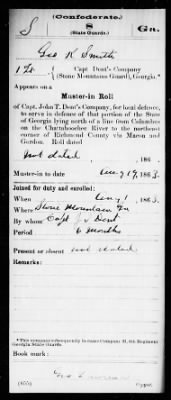 (Confederate.)
S
8
Ga.
(State Guards.)
Geo K Smith
Capt Dent's Company
(Stone Mountain Guard), Georgia.*
Appears on a
Muster-in Roll
of Capt. John T. Dent's Company, for local defence,
to serve in defence of that portion of the State
of Georgia lying north of a line from Columbus
on the Chattahoochee River to the northeast
corner of Richmond County via Macon and
Gordon. Roll dated
not dated, 186 .
Muster-in to date Aug 19, 1863.
Joined for duty and enrolled:
When Aug 1, 1863.
Where Stone Mountain Ga
By whom Capt J T Dent
Period 6 months
Present or absent not stated
Remarks:
* This company subsequently became Company
Georgia State Guards.
Book mark:
Copyist.